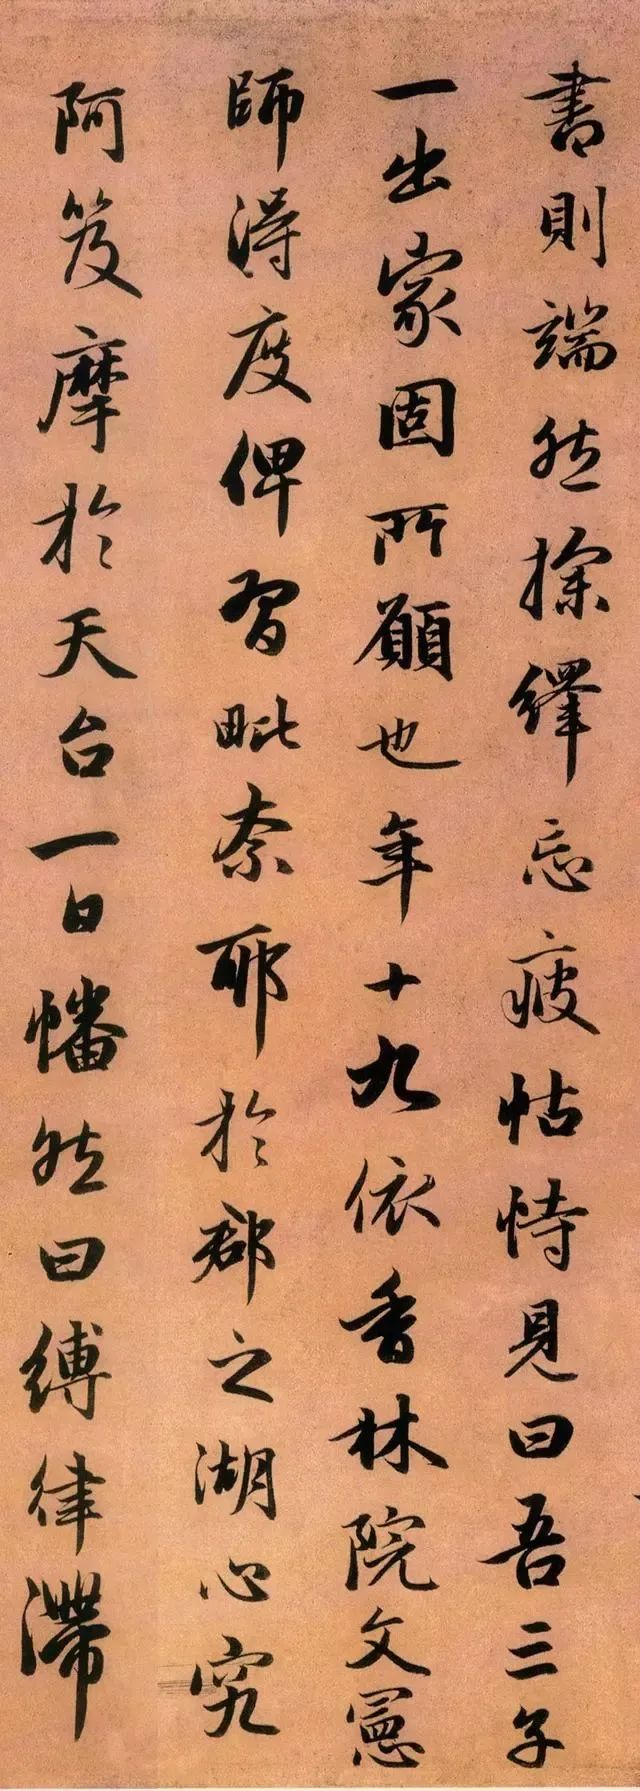 書則端然探繹忘疲怙恃見曰吾三子
一出家固所願也年十九依香林院文憲
師得度俾習毗奈耶於郡之湖心究
阿笈摩於天台一日幡然曰縛律滯